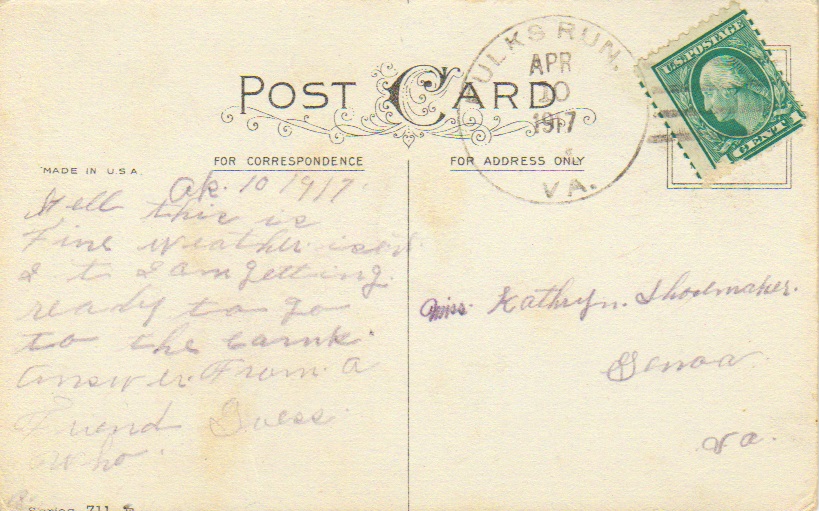 POST CARD
FULKS RUN,
APR
10
1917
VA.
U.S. POSTAGE
1 CENT 1
MADE IN U.S.A.
FOR CORRESPONDENCE
FOR ADDRESS ONLY
Ap. 10 1917.
Hell this is
Fine weather isen
I t I am getting
ready to go
to the
answer From a
Friend Guess
who
Miss. Kathryn. Shoemaker.
Genoa
Va.
Series 711